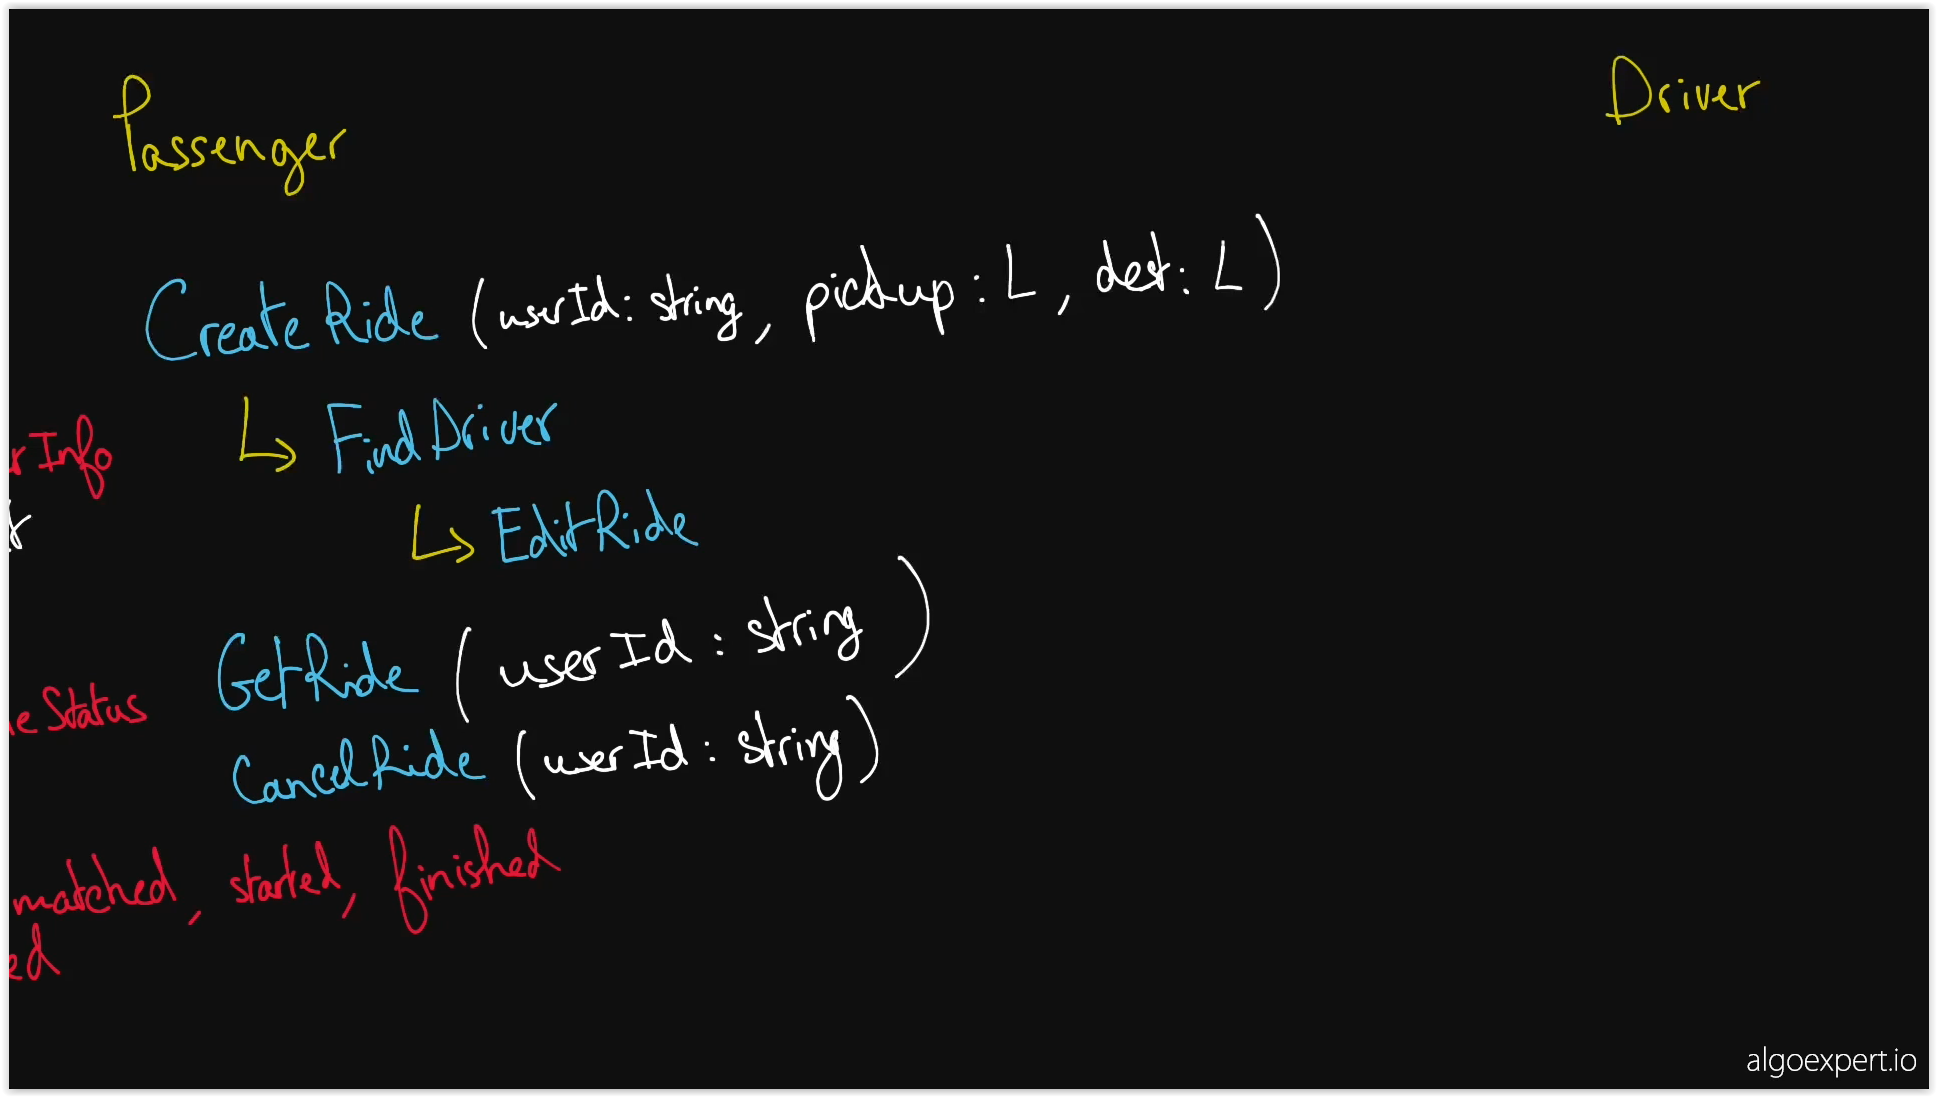 Passenger
Driver
CreateRide (userId: string, pickup: L, dest: L)
↳ FindDriver
r Info
↳ EditRide
GetRide (userId: string)
eStatus
CancelRide (userId: string)
matched, started, finished
ed
algoexpert.io